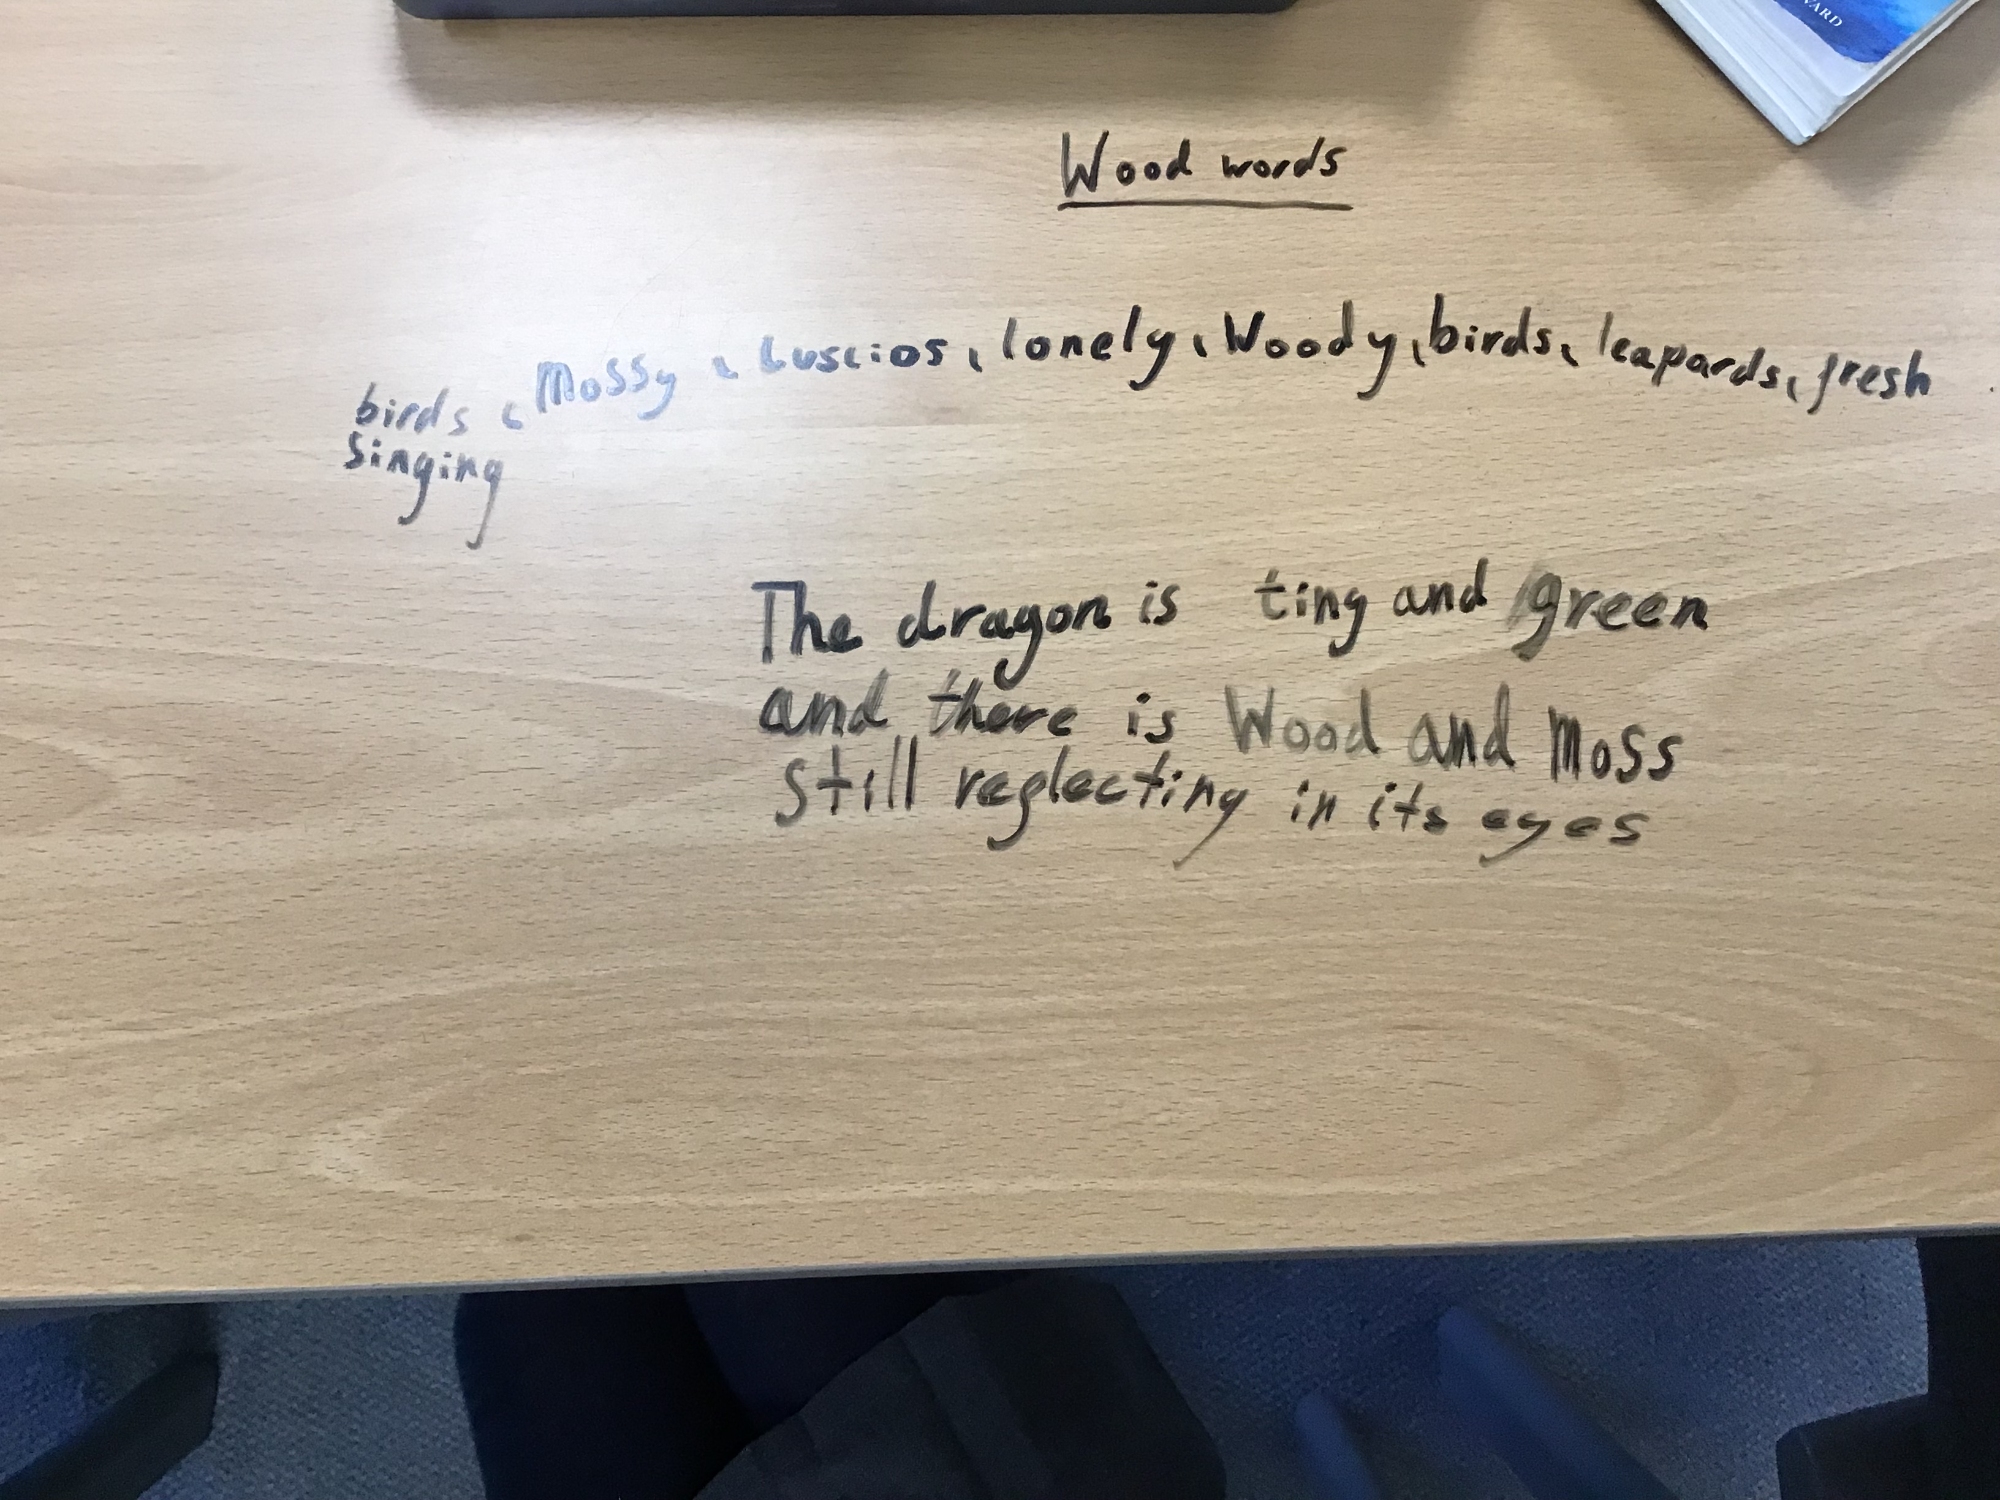 VARD
Wood words
birds singing, Mossy, Luscios, lonely, Woody, birds, leapards, fresh
The dragon is ting and green
and there is Wood and Moss
Still reflecting in its eyes